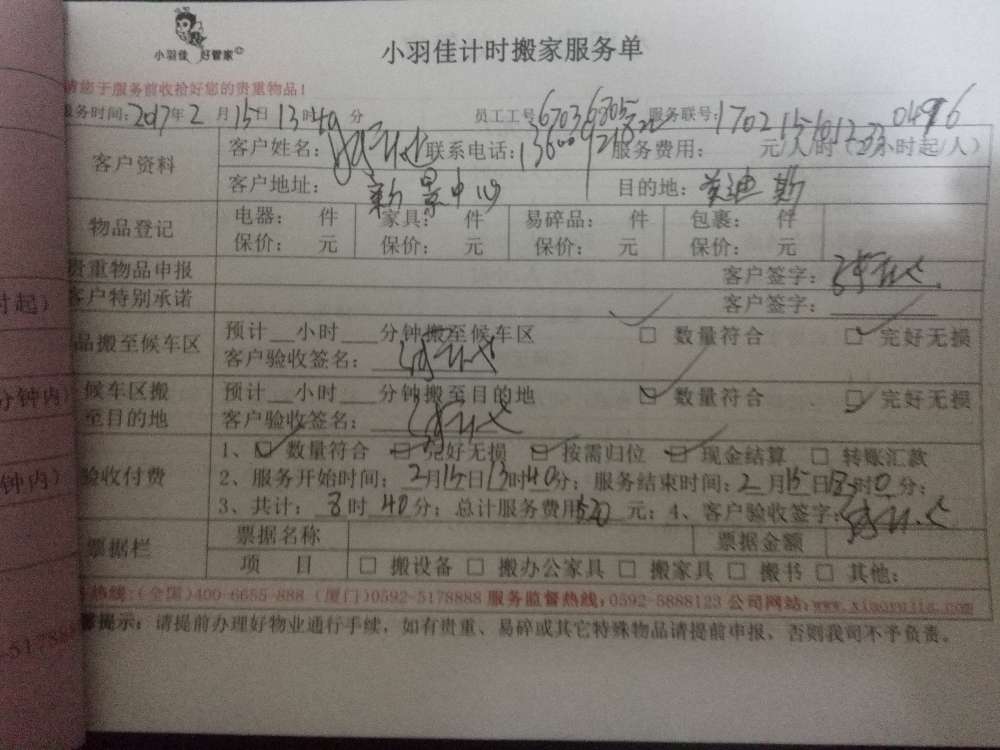 小羽佳 好管家
小羽佳计时搬家服务单
请您于服务前收拾好您的贵重物品！
服务时间：2017年2月15日13时40分 员工工号 服务联号：
客户资料 客户姓名： 联系电话： 服务费用： 元/人/时（2小时起/人）
客户地址：新景中心 目的地：英迪斯
物品登记 电器： 件 家具： 件 易碎品： 件 包裹： 件
保价： 元 保价： 元 保价： 元 保价： 元
贵重物品申报 客户签字：
客户特别承诺 客户签字：
时起）
品搬至候车区 预计__小时___分钟搬至候车区 □ 数量符合 ☑ 完好无损
客户验收签名：
分钟内） 候车区搬至目的地 预计__小时___分钟搬至目的地 ☑ 数量符合 ☑ 完好无损
客户验收签名：
钟内） 验收付费 1、☑ 数量符合 ☑ 完好无损 ☑ 按需归位 ☑ 现金结算 □ 转账汇款
2、服务开始时间：2月15日13时40分；服务结束时间：2月15日 时0分；
3、共计：8时40分；总计服务费用520元；4、客户验收签字：
票据栏 票据名称 票据金额
项 目 □ 搬设备 □ 搬办公家具 □ 搬家具 □ 搬书 □ 其他：
热线：（全国）400-6655-888（厦门）0592-5178888 服务监督热线：0592-5888123 公司网站：www.xiaoyujia.com
提示：请提前办理好物业通行手续，如有贵重、易碎或其它特殊物品请提前申报，否则我司不予负责。
-517888